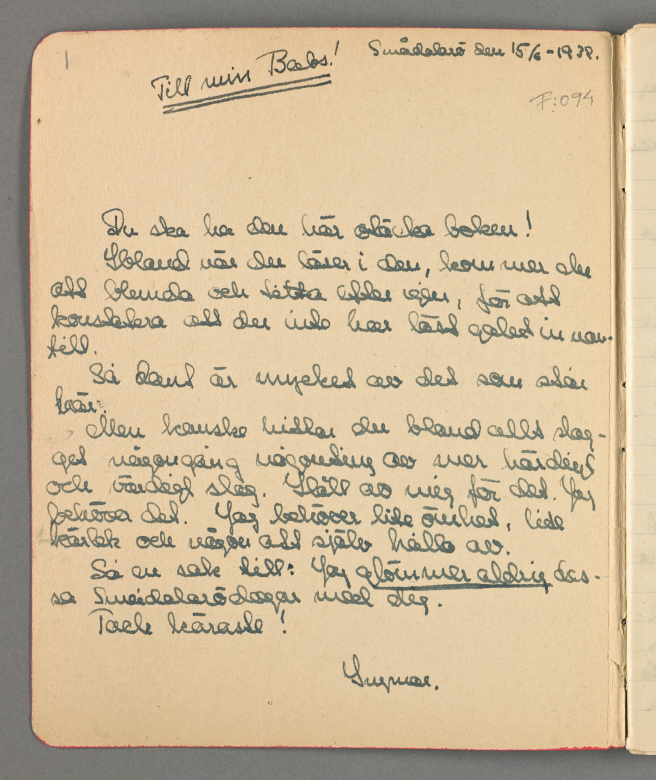 1
Smådalarö den 15/6-1938.
Till min Babs!
F:094
Du ska ha den här otäcka boken!
Ibland när du läser i den, kommer du
att blunda och titta efter igen, för att
konstatera att du inte har läst galet innan-
till.
Så dant är mycket av det som står
här.
Men kanske hittar du bland allt slag-
get någongång någonting av mer härdigt
och värdigt slag. Håll av mig för det. Jag
behöver det. Jag behöver lite ömhet, lite
kärlek och någon att själv hålla av.
Så en sak till: Jag glömmer aldrig des-
sa Smådalarödagar med dig.
Tack käraste!
Ingmar.